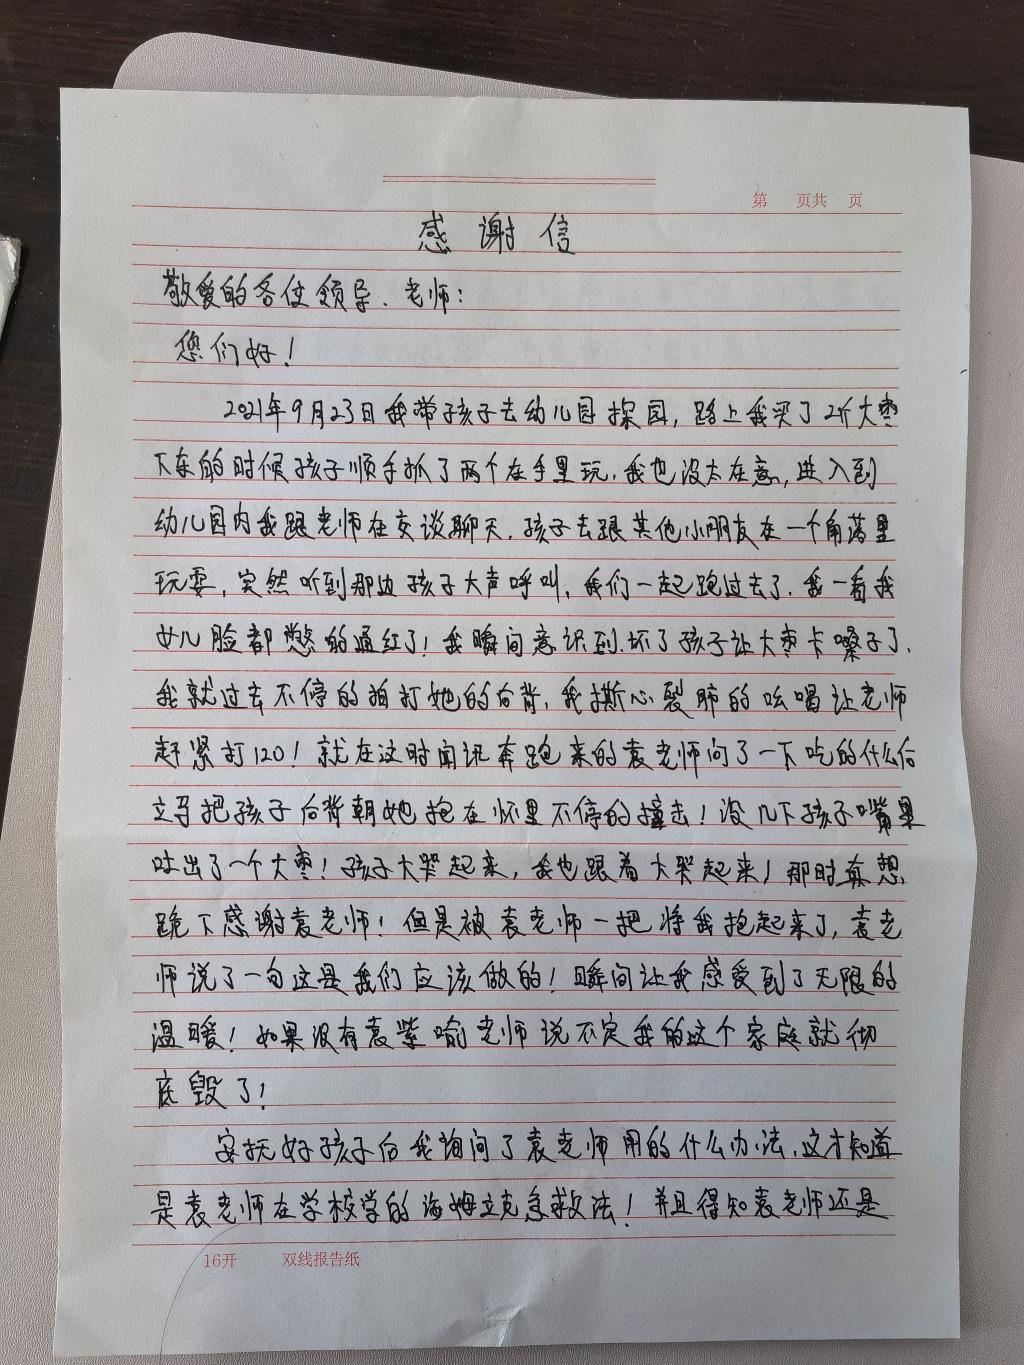 第 页共 页
感谢信
敬爱的各位领导、老师:
您们好!
2021年9月23日我带孩子去幼儿园探园,路上我买了2斤大枣
下车的时候孩子顺手抓了两个在手里玩,我也没太在意,进入到
幼儿园内我跟老师在交谈聊天,孩子去跟其他小朋友在一个角落里
玩耍,突然听到那边孩子大声呼叫,我们一起跑过去了.我一看我
女儿脸都憋的通红了!我瞬间意识到.坏了孩子让大枣卡嗓子了.
我就过去不停的拍打她的后背,我撕心裂肺的吆喝让老师
赶紧打120!就在这时闻讯奔跑来的袁老师问了一下吃的什么后
立马把孩子后背朝她抱在怀里不停的撞击!没几下孩子嘴里
吐出了一个大枣!孩子大哭起来,我也跟着大哭起来!那时真想
跪下感谢袁老师!但是被袁老师一把将我抱起来了,袁老
师说了一句这是我们应该做的!瞬间让我感受到了无限的
温暖!如果没有袁紫喻老师说不定我的这个家庭就彻
底毁了!
安抚好孩子后我询问了袁老师用的什么办法,这才知道
是袁老师在学校学的海姆立克急救法!并且得知袁老师还是
16开 双线报告纸